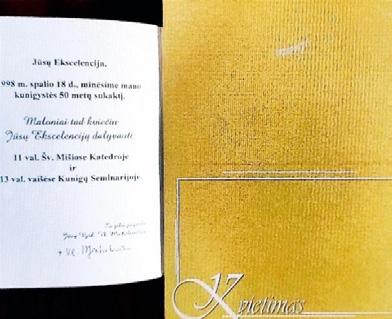 Jūsų Ekscelencija,
998 m. spalio 18 d., minėsime mano
kunigystės 50 metų sukaktį.
Maloniai tad kviečiu
Jūsų Ekscelenciją dalyvauti
11 val. Šv. Mišiose Katedroje
ir
13 val. vaišėse Kunigų Seminarijoje
Kvietimas